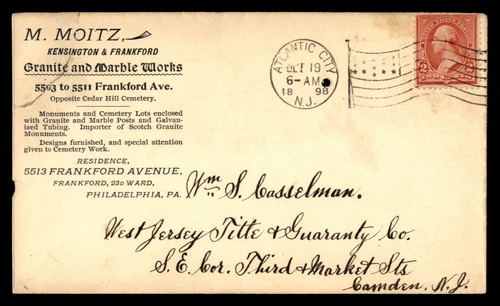 M. MOITZ,
KENSINGTON & FRANKFORD
Granite and Marble Works
5503 to 5511 Frankford Ave.
Opposite Cedar Hill Cemetery.
Monuments and Cemetery Lots enclosed
with Granite and Marble Posts and Galvan-
ized Tubing. Importer of Scotch Granite
Monuments.
Designs furnished, and special attention
given to Cemetery Work.
RESIDENCE,
5513 FRANKFORD AVENUE,
FRANKFORD, 23D WARD,
PHILADELPHIA, PA.
ATLANTIC CITY
OCT 19
6-AM
18 98
N.J.
2 2
Wm S. Casselman.
West Jersey Title & Guaranty Co.
S. E. Cor. Third & Market Sts
Camden. N. J.